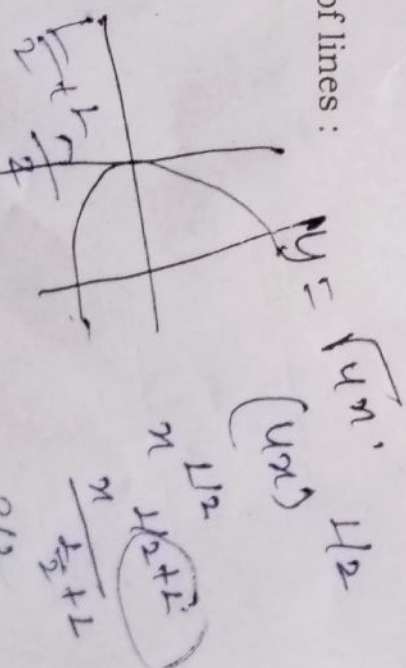 of lines :
y = √4x
(4x) 1/2
x 1/2
x 1/2+1
1/2+1
1/2+1